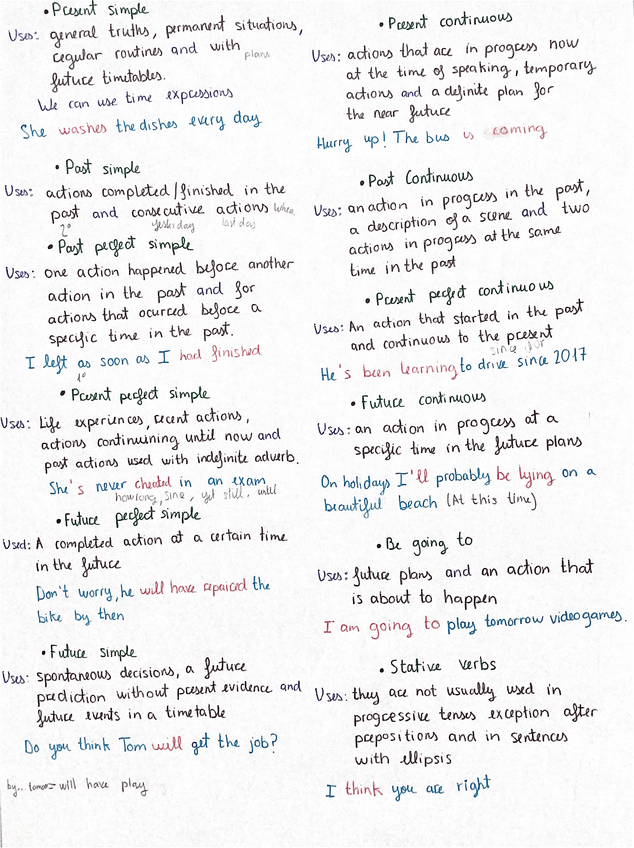 • Present simple
Uses: general truths, permanent situations,
regular routines and with plans
future timetables.
We can use time expressions
She washes the dishes every day
• Past simple
Uses: actions completed/finished in the
past and consecutive actions when
2º yesterday last day
• Past perfect simple
Uses: one action happened before another
action in the past and for
actions that ocurred before a
specific time in the past.
I left as soon as I had finished
1º
• Present perfect simple
Uses: Life experiences, recent actions,
actions continuining until now and
past actions used with indefinite adverb.
She's never cheated in an exam
how long, sine, yet still. until
• Future perfect simple
Used: A completed action at a certain time
in the future
Don't worry, he will have repaired the
bike by then
• Future simple
Uses: spontaneous decisions, a future
prediction without present evidence and
future events in a timetable
Do you think Tom will get the job?
by.. tomor= will have play
• Present continuous
Uses: actions that are in progress now
at the time of speaking, temporary
actions and a definite plan for
the near future
Hurry up! The bus is coming
• Past Continuous
Uses: an action in progress in the past,
a description of a scene and two
actions in progress at the same
time in the past
• Present perfect continuous
Uses: An action that started in the past
and continuous to the present
since for
He's been learning to drive since 2017
• Future continuous
Uses: an action in progress at a
specific time in the future plans
On holidays I'll probably be lying on a
beautiful beach (At this time)
• Be going to
Uses: future plans and an action that
is about to happen
I am going to play tomorrow videogames.
• Stative verbs
Uses: they are not usually used in
progressive tenses exception after
prepositions and in sentences
with ellipsis
I think you are right